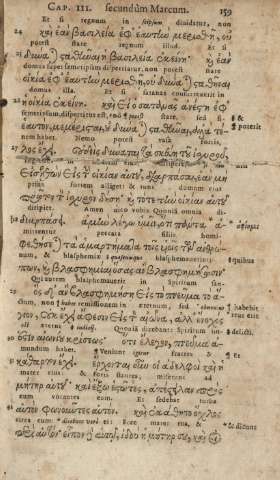 CAP. III. secundùm Marcum. 159
Et si regnum in seipsum diuidatur, non
24 καὶ ἐὰν βασιλεία ἐφ' ἑαυτὴν μερισθῇ, οὐ
potest stare regnum illud. Et si
δύναται σταθῆναι ἡ βασιλεία ἐκείνη. καὶ ἐὰν
domus super semetipsum dispertiatur, non potest stare
οἰκία ἐφ' ἑαυτὴν μερισθῇ, οὐ δύναται σταθῆναι
domus illa. Et si satanas consurrexerit in
ἡ οἰκία ἐκείνη. καὶ εἰ ὁ σατανᾶς ἀνέστη ἐφ'
semetipsum, dispertitus est, stare, sed
ἑαυτὸν, μεμέρισται, οὐ δύναται σταθῆναι, ἀλλὰ τέ-
nem habet. Nemo potest vasa fortis,
27 λος ἔχει. Οὐδεὶς δύναται τὰ σκεύη τοῦ ἰσχυροῦ,
εἰσελθὼν εἰς τὴν οἰκίαν αὐτοῦ, διαρπάσαι, ἐὰν μὴ
prius fortem alliget: & tunc domum eius
πρῶτον τὸν ἰσχυρὸν δήσῃ· καὶ τότε τὴν οἰκίαν αὐτοῦ
diripiet. Amen dico vobis Quoniam omnia di-
28 διαρπάσει. ἀμὴν λέγω ὑμῖν, ὅτι πάντα
mittentur peccata filiis homi-
φεθήσεται τὰ ἁμαρτήματα τοῖς υἱοῖς τῶν ἀνθρώ-
num, & blasphemiæ quascunque blasphemauerint: quibus
πων, καὶ βλασφημίαι ὅσας ἂν βλασφημήσωσιν·
Qui autem blasphemauerit in Spiritum san-
29 ὃς δ' ἂν βλασφημήσῃ εἰς τὸ πνεῦμα τὸ ἅ-
ctum, non habet remissionem in æternum, sed habebit
γιον, οὐκ ἔχει ἄφεσιν εἰς τὸν αἰῶνα, ἀλλ' ἔνοχός
æterni Quoniam dicebant: Spiritum im- delicti.
30 ἐστιν αἰωνίου κρίσεως· ὅτι ἔλεγον, πνεῦμα ἀ-
mundum habet. Veniunt igitur fratres & Et
κάθαρτον ἔχει. ἔρχονται οὖν οἱ ἀδελφοὶ καὶ ἡ
mater eius: & foris stantes, miserunt ad
μήτηρ αὐτοῦ· καὶ ἔξω ἑστῶτες, ἀπέστειλαν πρὸς
eum vocantes eum. Et sedebat turba
αὐτὸν φωνοῦντες αὐτόν. καὶ ἐκάθητο ὄχλος
circa eum: dicebant verò ei: Ecce mater tua, & & dicunt
περὶ αὐτόν· εἶπον δὲ αὐτῷ, ἰδοὺ ἡ μήτηρ σου, καὶ οἱ